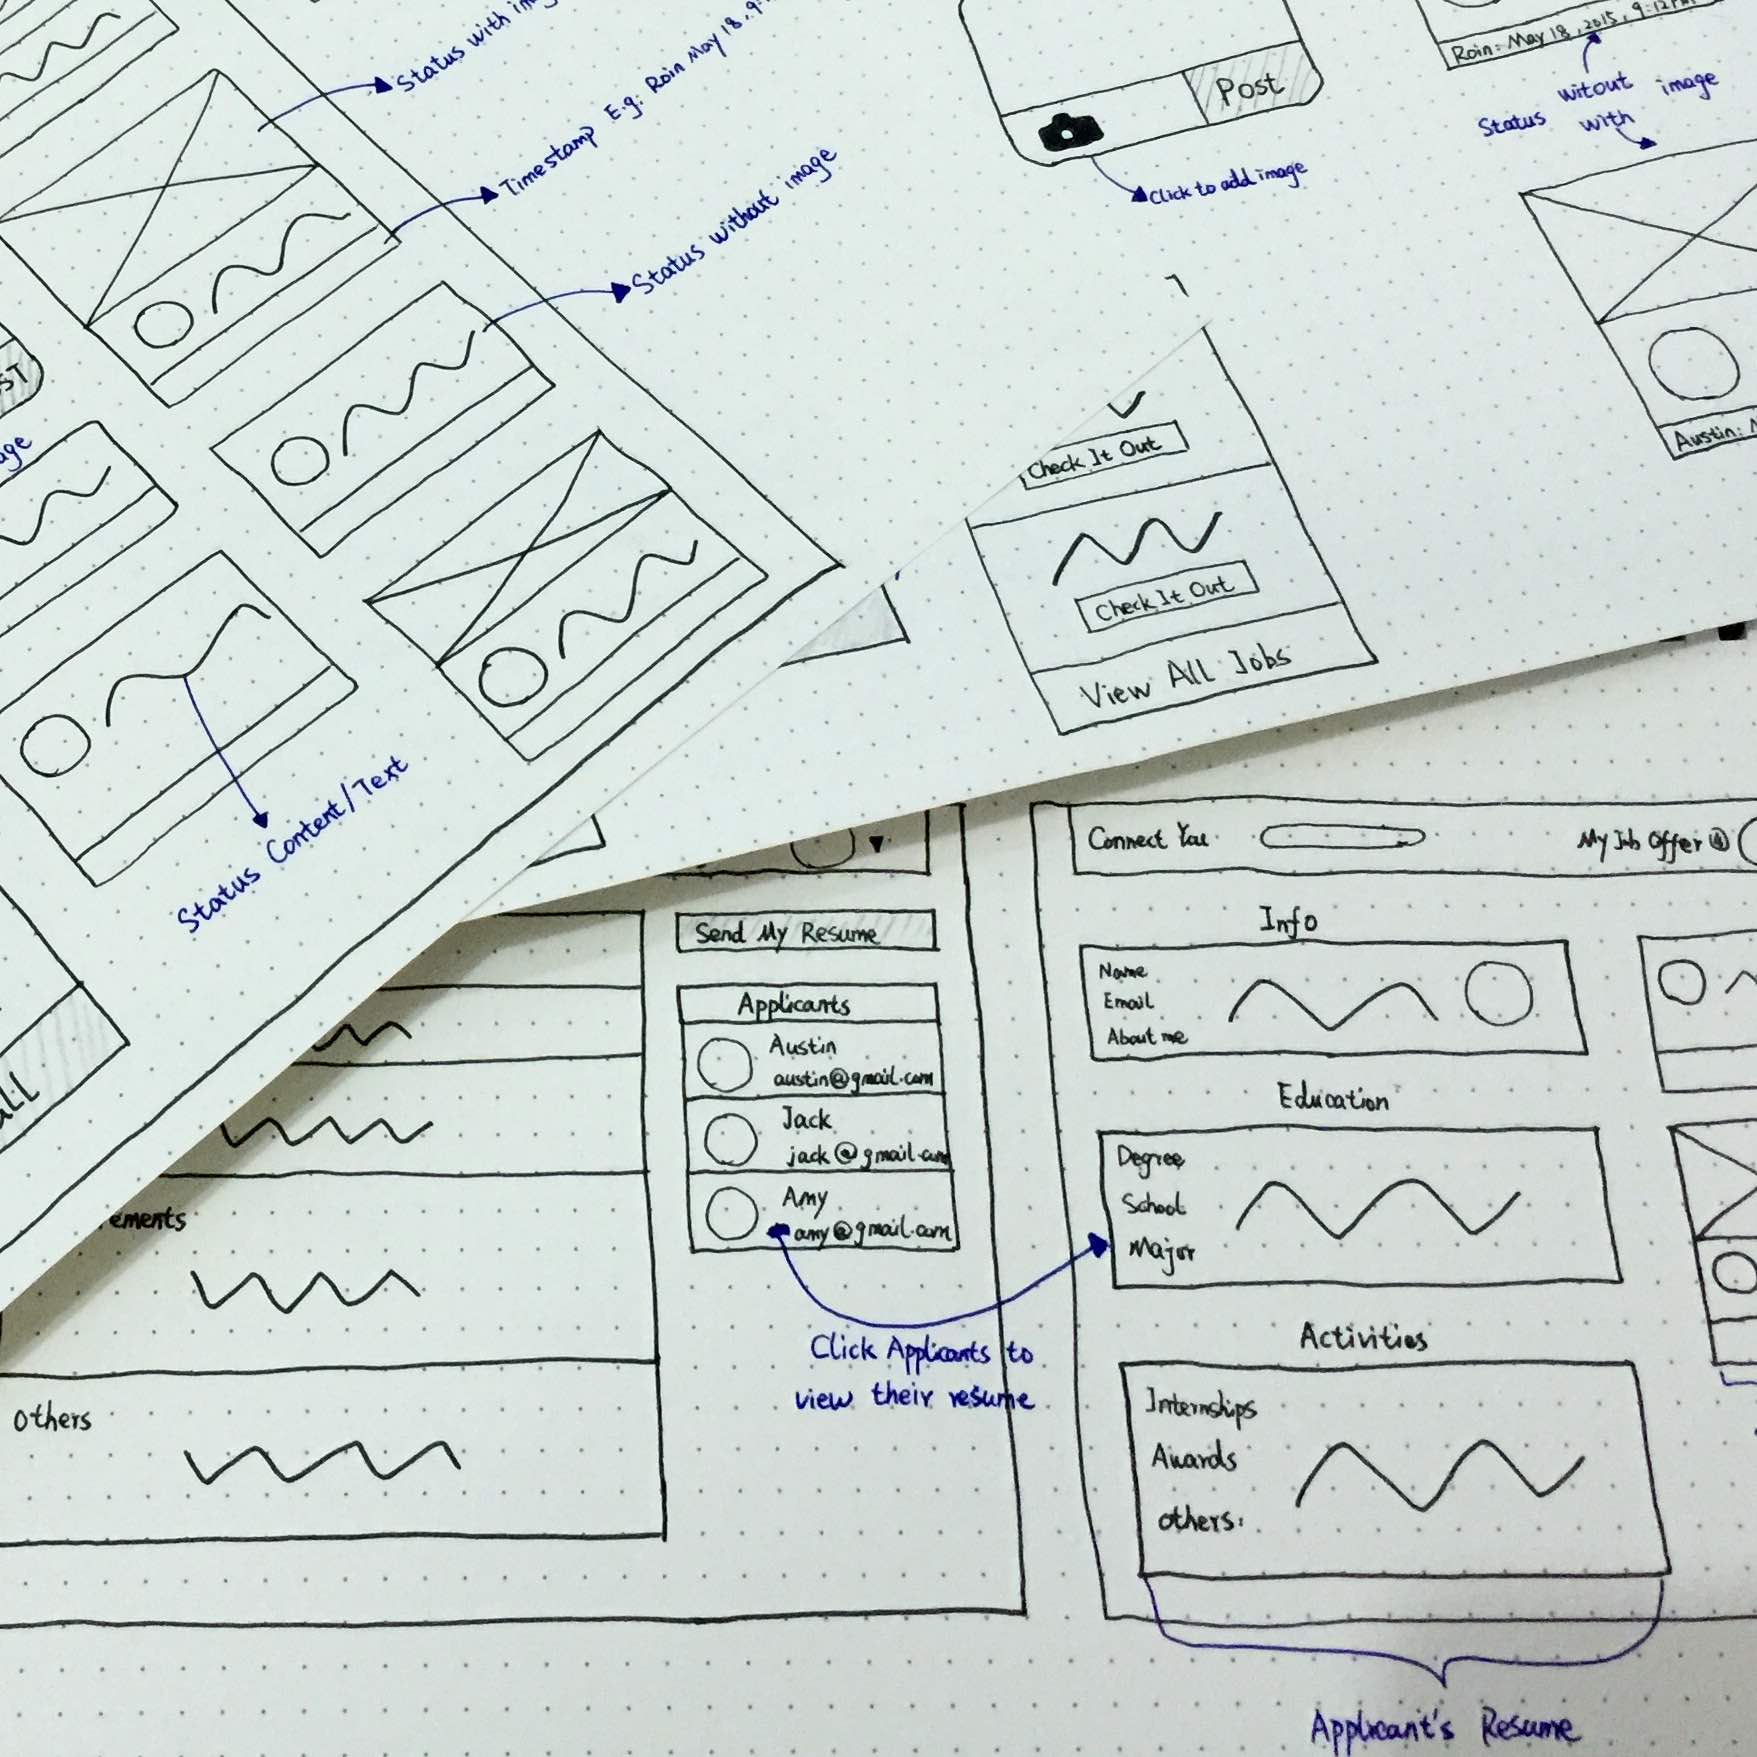 Status with
Timestamp E.g. Roin May 18, 9:
Status without image
Status Content/Text
Post
Click to add image
Roin: May 18, 2015, 9:12PM
Status witout image
with
Austin:
Check It Out
Check It Out
View All Jobs
Send My Resume
Applicants
Austin
austin@gmail.com
Jack
jack@gmail.com
Amy
amy@gmail.com
Click Applicants to
view their resume
ements
others
Connect You
My Job Offer
Info
Name
Email
About me
Education
Degree
School
Major
Activities
Internships
Awards
others:
Applicant's Resume